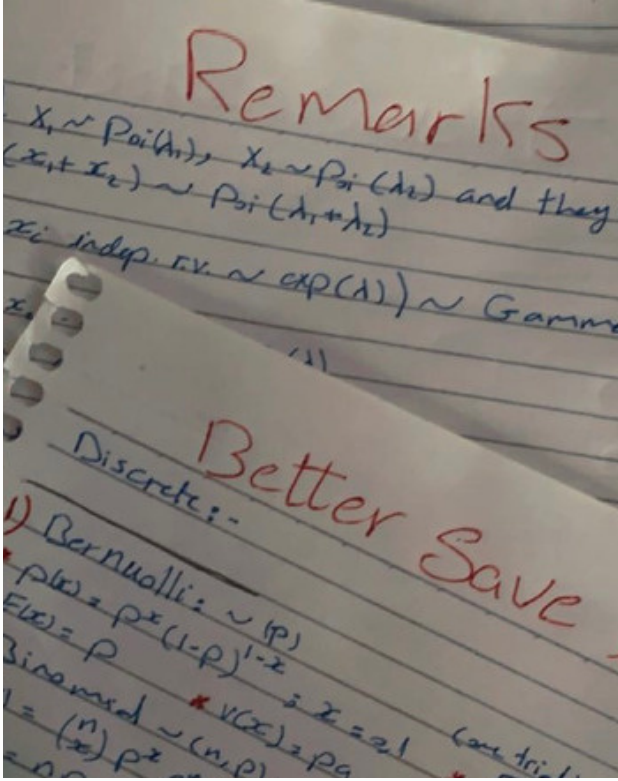 Remarks
X₁ ~ Poi(λ₁), X₂ ~ Poi(λ₂) and they
(x₁ + x₂) ~ Poi(λ₁+λ₂)
xᵢ indep. r.v. ~ exp(λ)) ~ Gamma
(λ)
Better Save
Discrete:-
1) Bernuolli: ~ (p)
* p(x) = p^x (1-p)^1-x ; x =
E(x) = p * V(x) = pq
Binomial ~ (n, p)
= (n x) p^x
= np